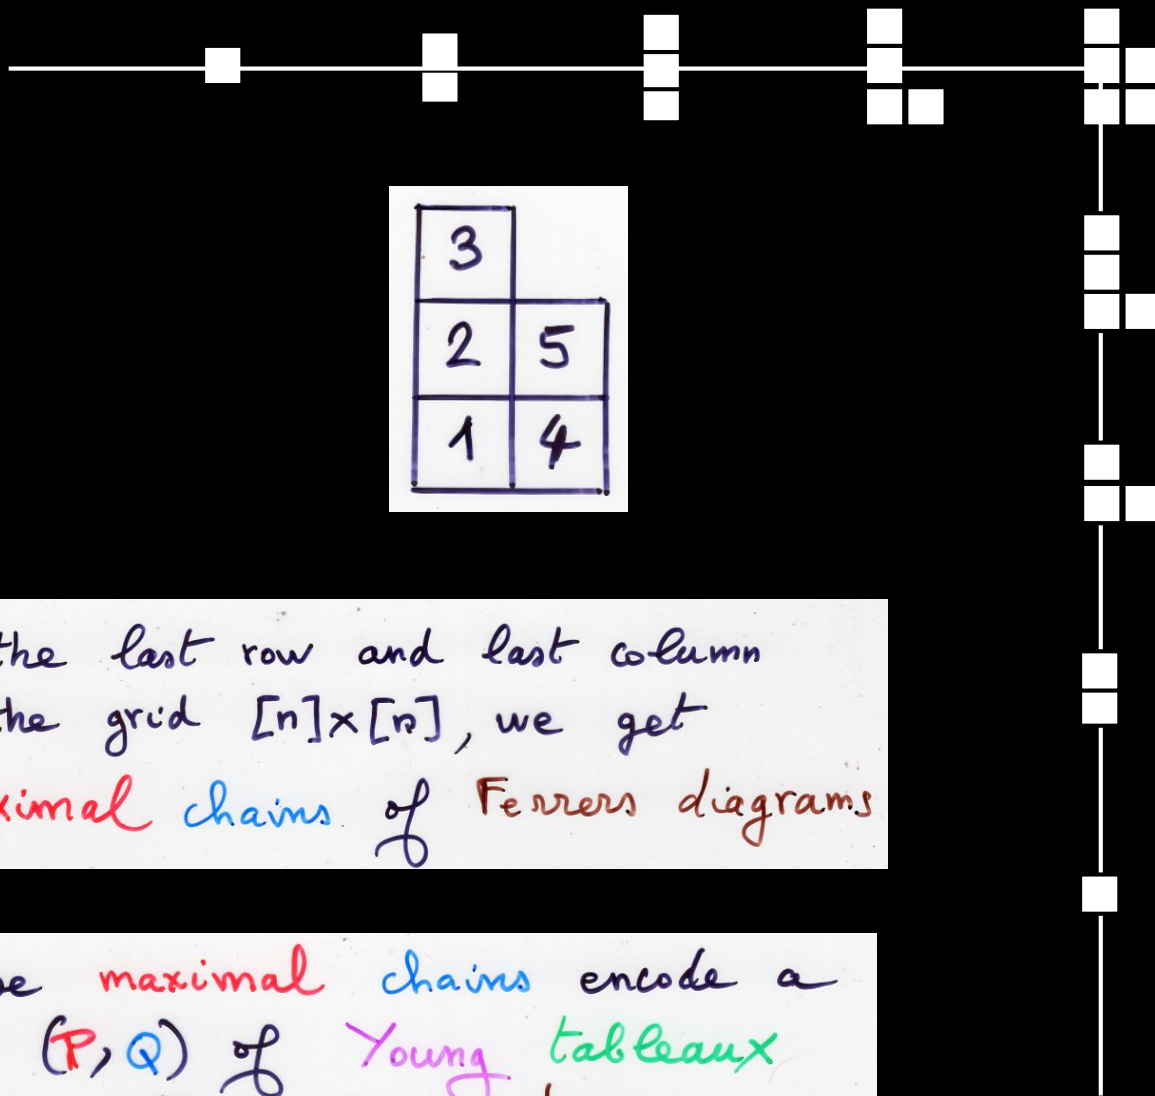 3
2 5
1 4
the last row and last column
the grid [n]×[n], we get
ximal chains of Ferrers diagrams
se maximal chains encode a
(P, Q) of Young tableaux